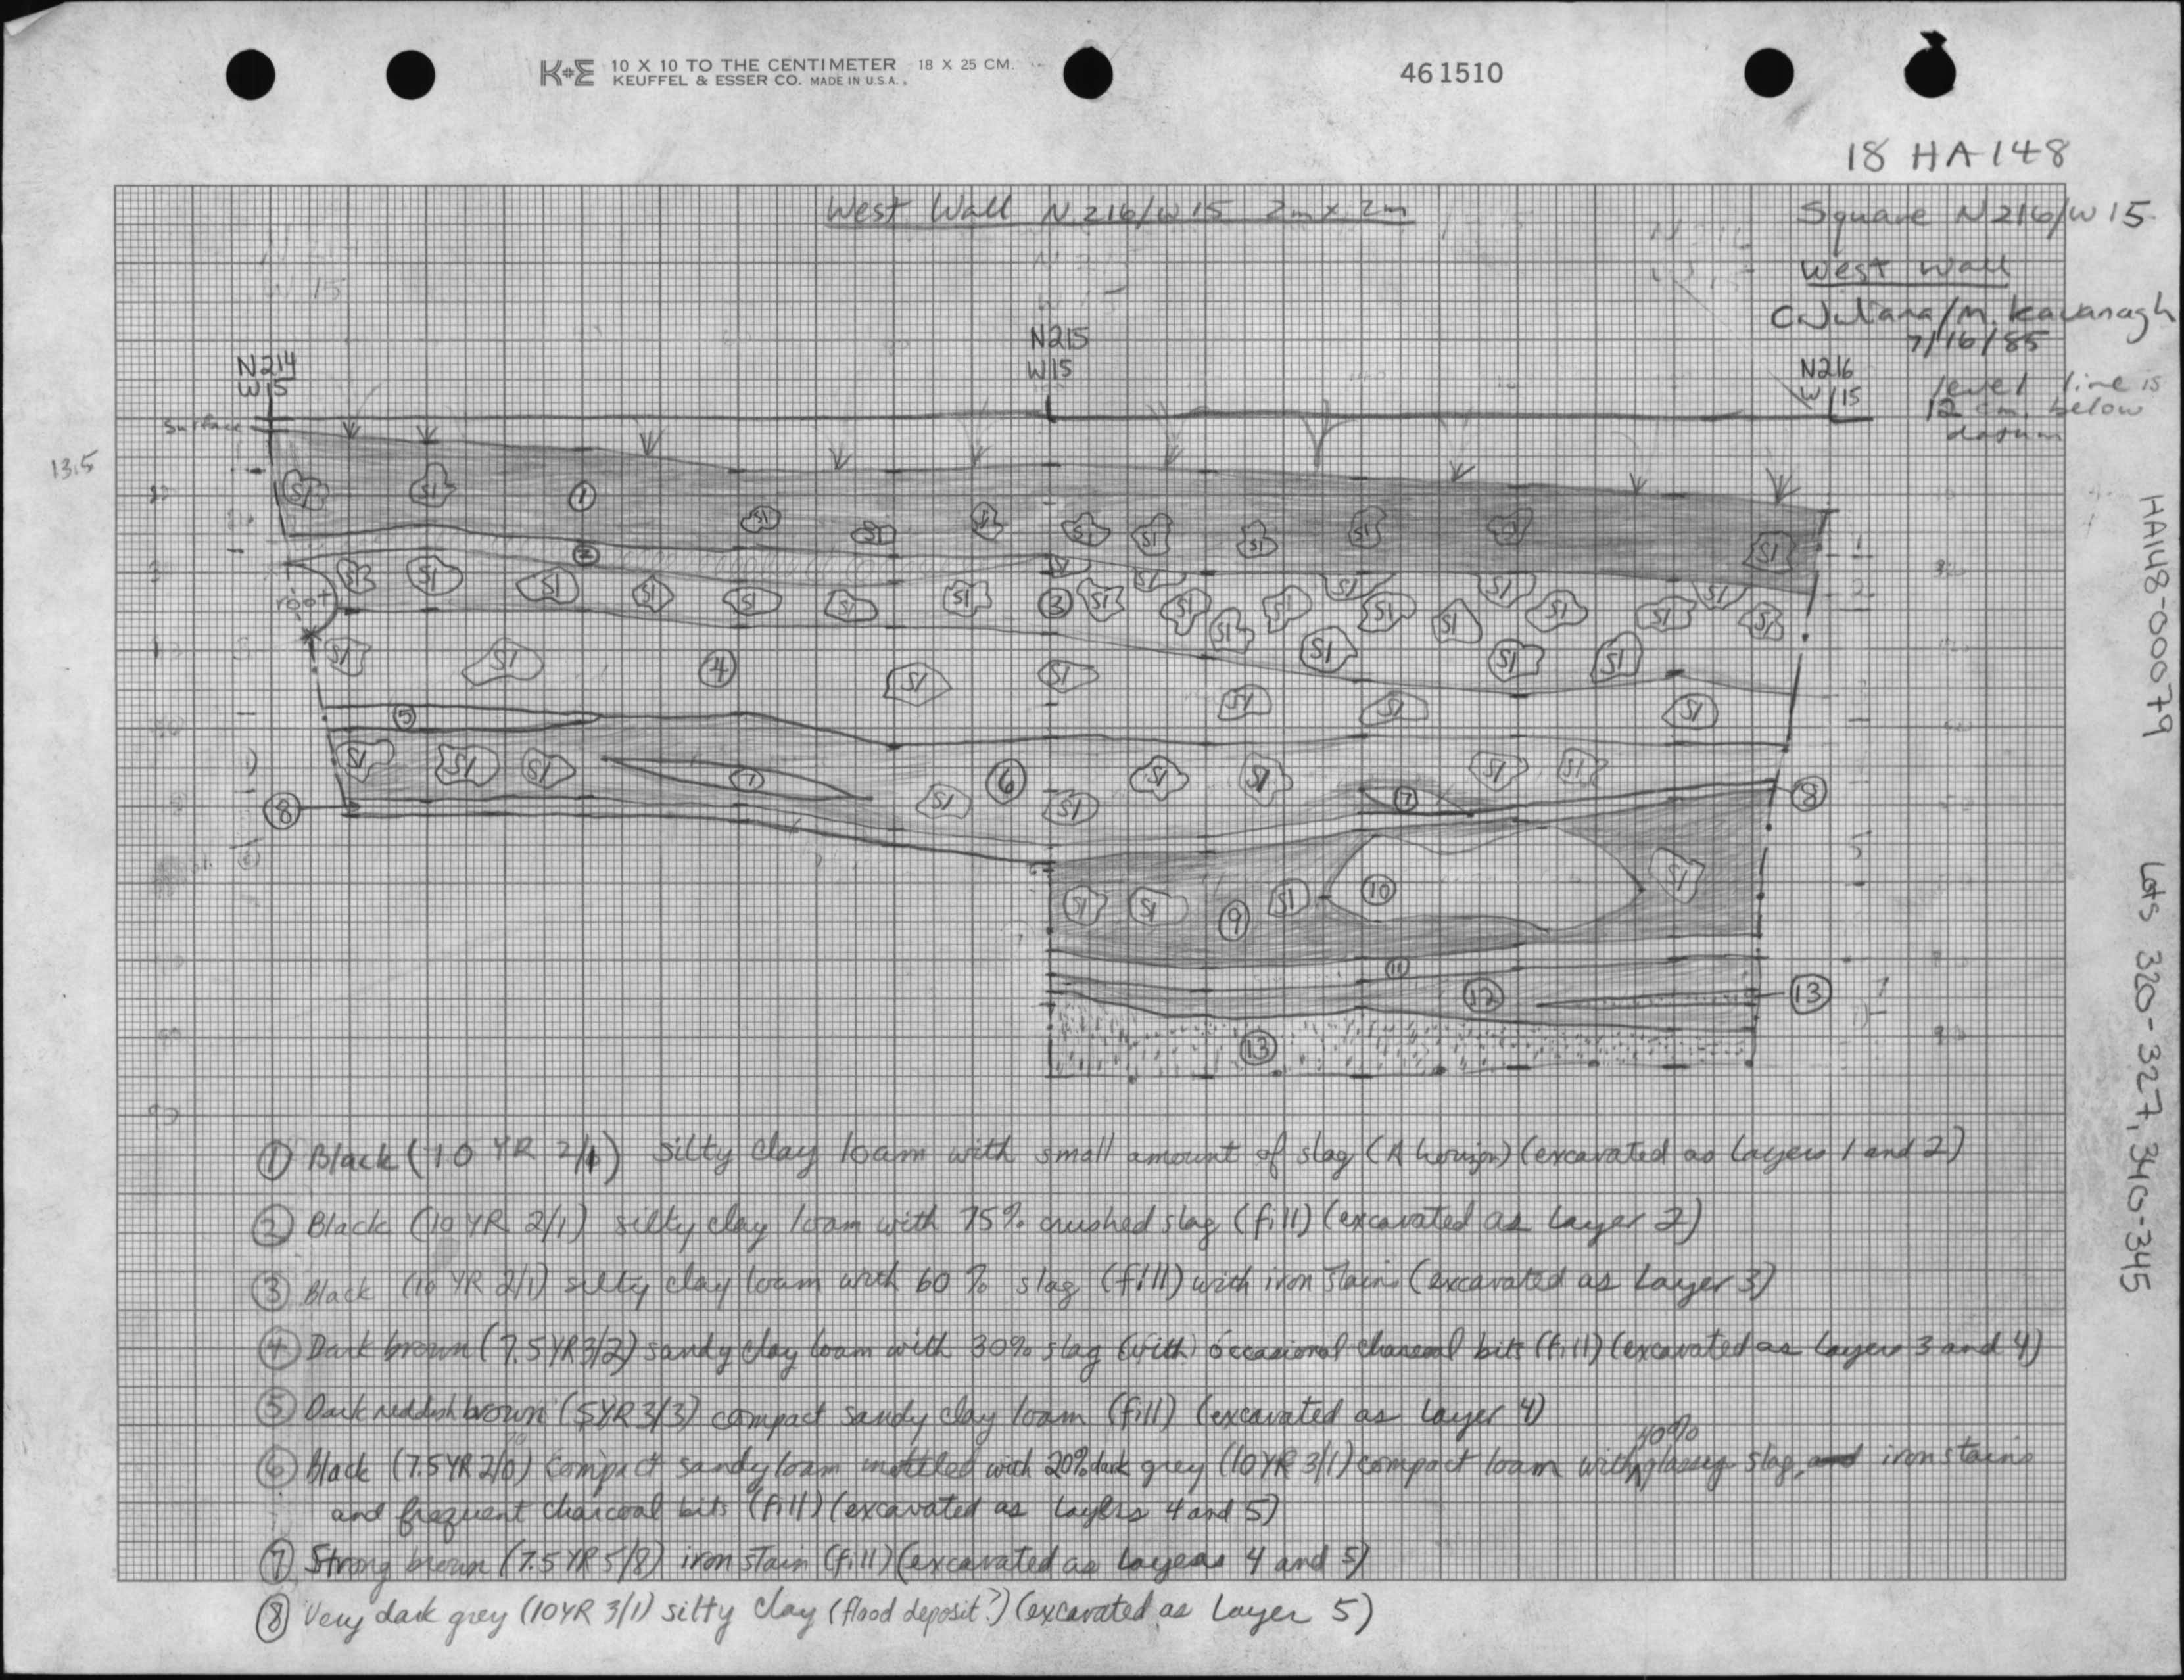 K+E 10 X 10 TO THE CENTIMETER 18 X 25 CM.
KEUFFEL & ESSER CO. MADE IN U.S.A.
461510
18 HA 148
West Wall N216/W15 2m x 2m
Square N216/W15
West Wall
M. Kavanagh
7/16/85
level line is
12 cm. below
datum
N214
W15
N215
W15
N216
W15
Surface
13.5
SI SI 1
SI SI SI SI SI SI SI SI SI
2
root
SI SI SI SI SI SI SI 3 SI SI SI SI SI SI SI SI SI SI SI SI SI SI SI
SI SI 4 SI SI SI SI SI
5
SI SI SI 7 SI 6 SI SI SI SI SI 7
8
8
SI SI 9 SI 10 SI
11
12
13
13
① Black (10 YR 2/1) silty clay loam with small amount of slag (A horizon) (excavated as Layers 1 and 2)
② Black (10 YR 2/1) silty clay loam with 75% crushed slag (fill) (excavated as Layer 2)
③ Black (10 YR 2/1) silty clay loam with 60% slag (fill) with iron stains (excavated as Layer 3)
④ Dark brown (7.5YR3/2) sandy clay loam with 30% slag (with) occasional charcoal bits (fill) (excavated as Layers 3 and 4)
⑤ Dark reddish brown (5YR3/3) compact sandy clay loam (fill) (excavated as Layer 4)
⑥ Black (7.5YR 2/0) compact sandy loam mottled with 20% dark grey (10YR 3/1) compact loam with 40% glassy slag, and iron stains
and frequent charcoal bits (fill) (excavated as Layers 4 and 5)
⑦ Strong brown (7.5YR 5/8) iron stain (fill) (excavated as Layers 4 and 5)
⑧ Very dark grey (10YR 3/1) silty clay (flood deposit?) (excavated as Layer 5)
HA148-000079
Lots 320-327, 340-345